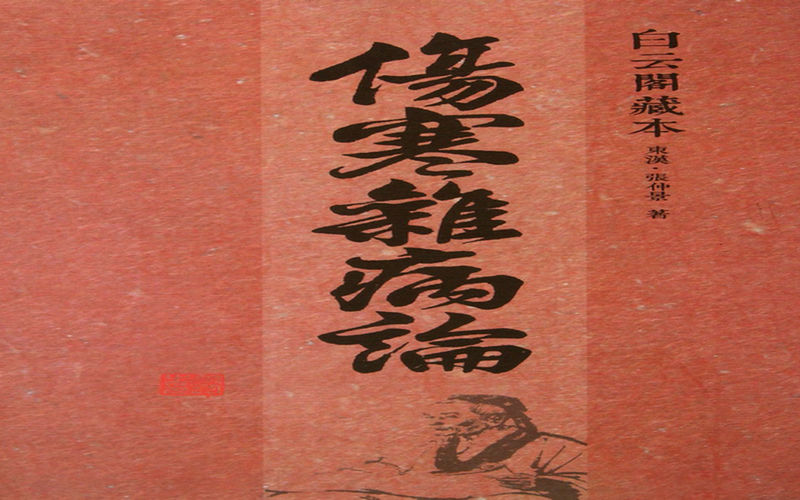 白云閣藏本
東漢·張仲景 著
傷寒雜病論